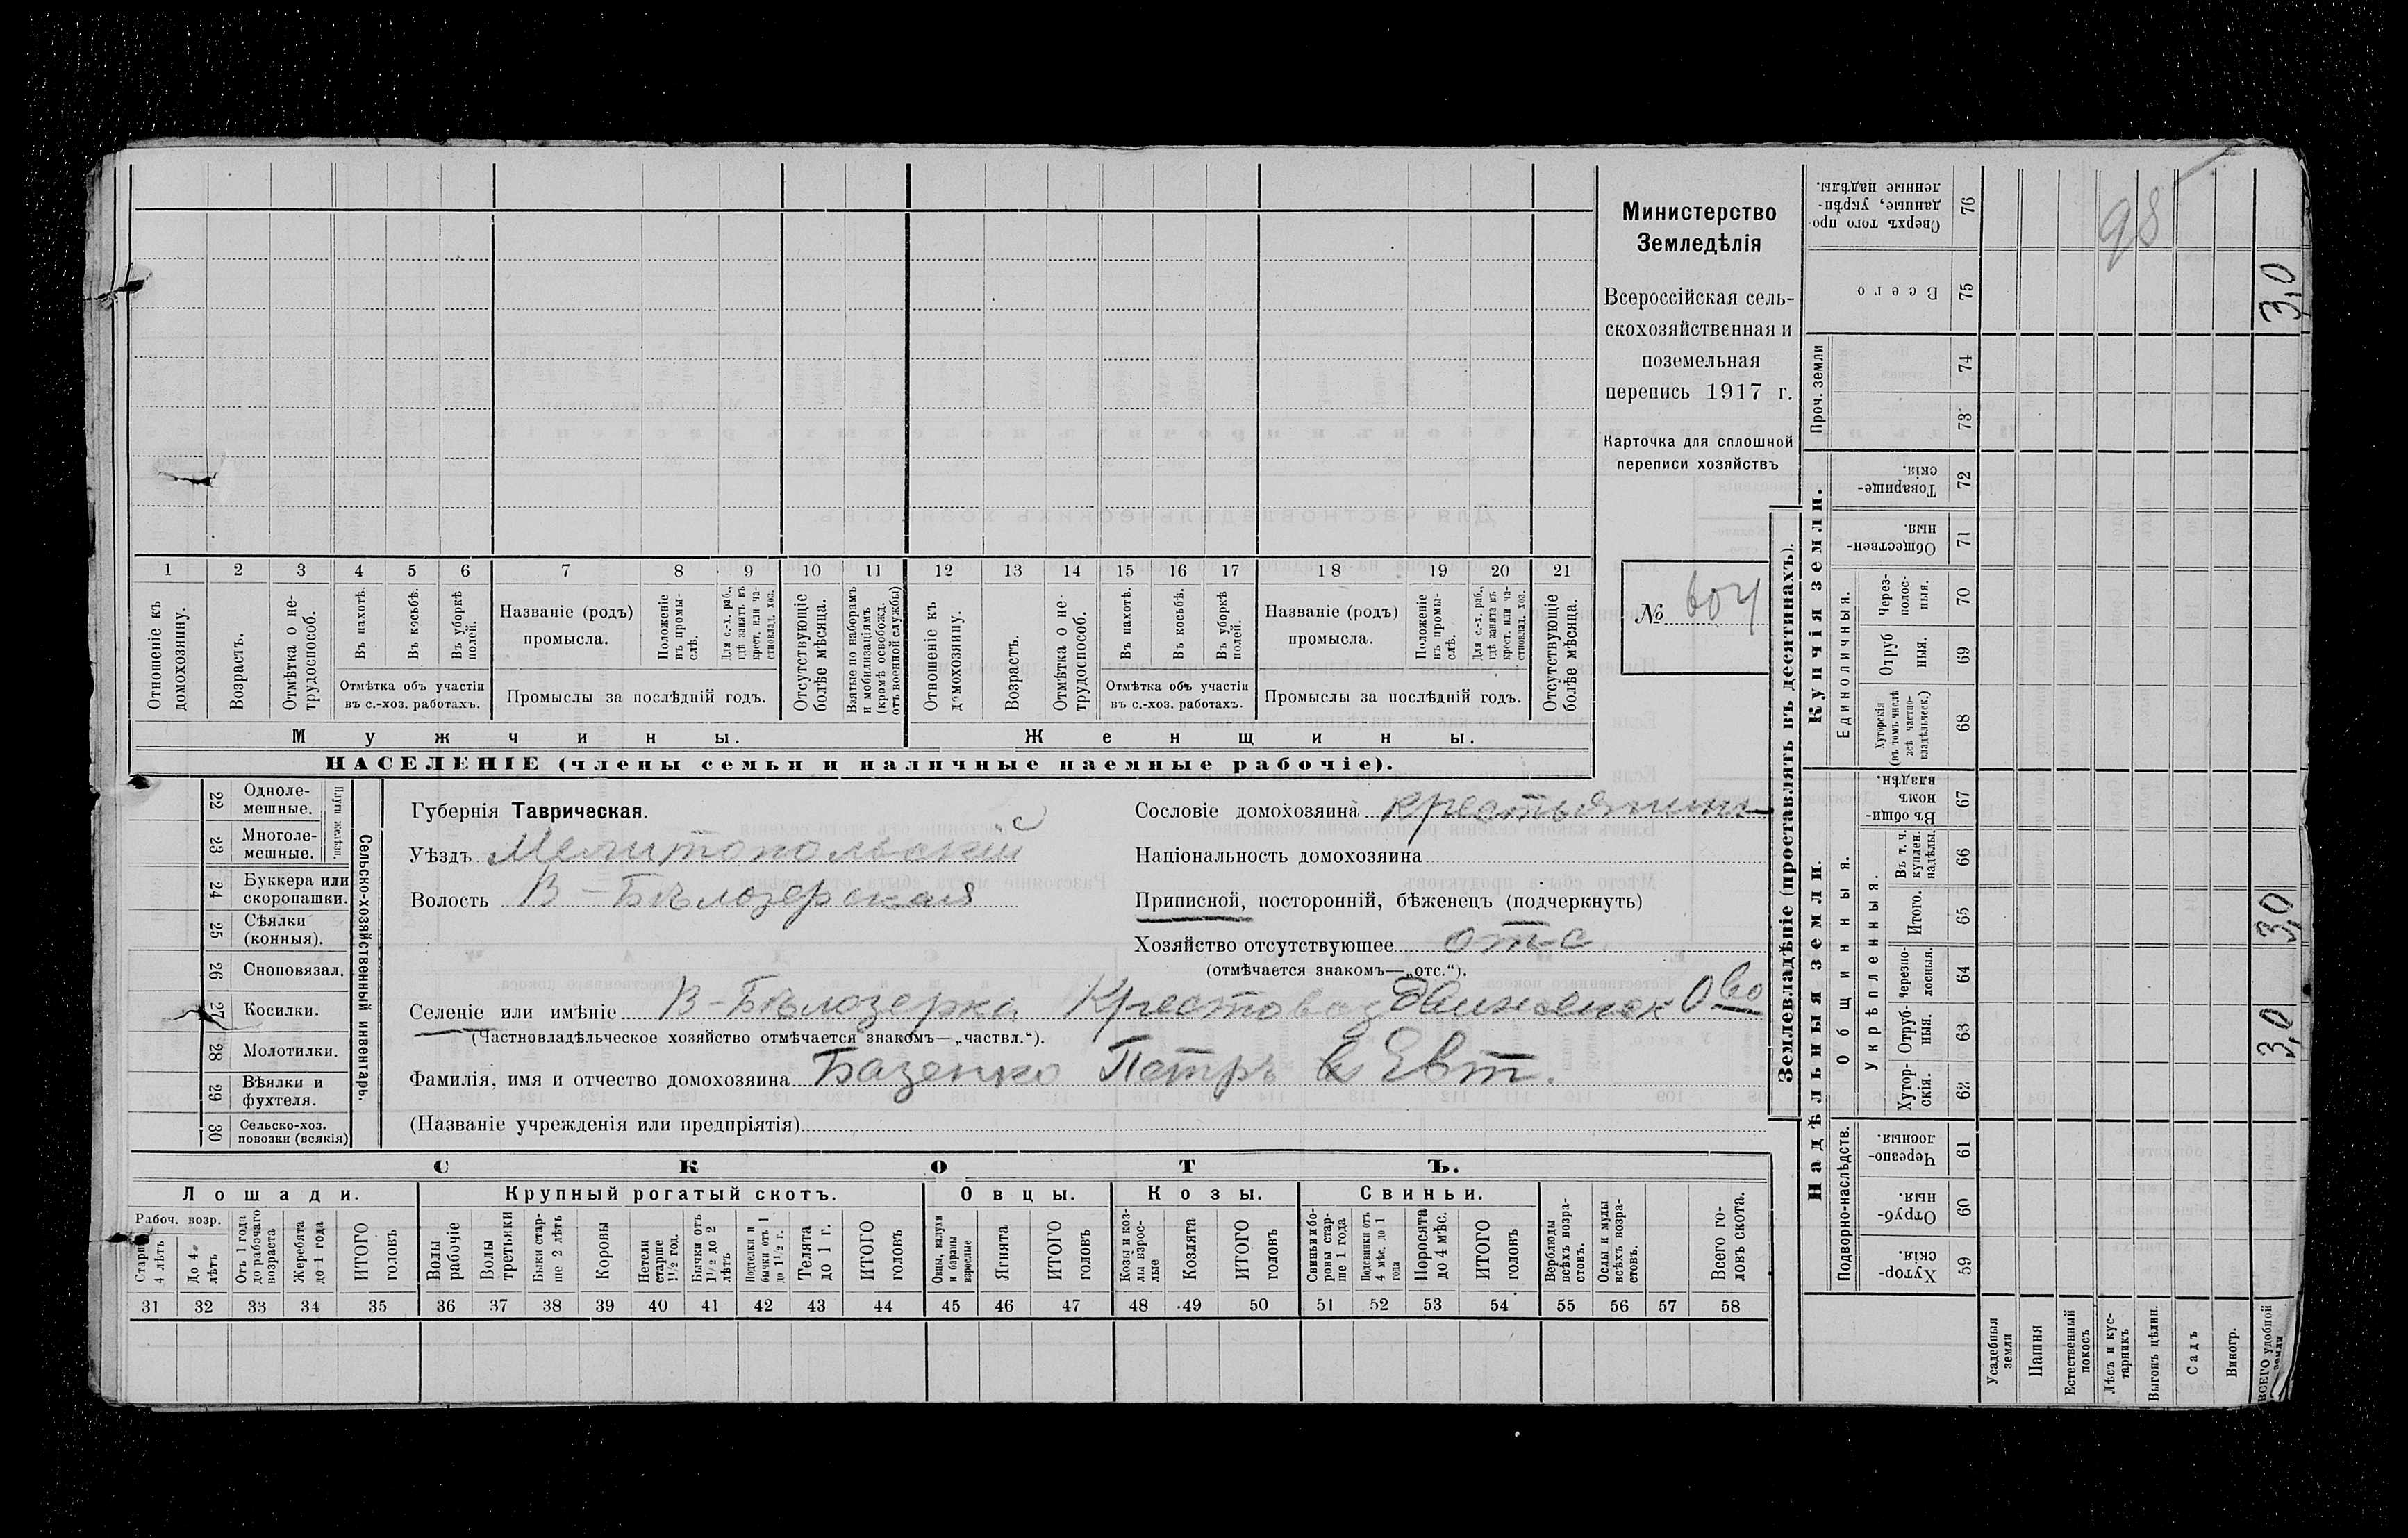 Министерство
Земледѣлія
Всероссійская сель-
скохозяйственная и
поземельная
перепись 1917 г.
Карточка для сплошной
переписи хозяйствъ
№ 604
1 2 3 4 5 6 7 8 9 10 11 12 13 14 15 16 17 18 19 20 21
Отношеніе къ домохозяину.
Возрастъ.
Отмѣтка о не-трудоспособ.
Въ пахотѣ.
Въ косьбѣ.
Въ уборкѣ полей.
Отмѣтка объ участіи
въ с.-хоз. работахъ.
Названіе (родъ)
промысла.
Положеніе въ промы-слѣ.
Для с.-х. раб., гдѣ занятъ въ крест. или ча-стновлад. хоз.
Промыслы за послѣдній годъ.
Отсутствующіе болѣе мѣсяца.
Взятые по наборамъ и мобилизаціямъ (кромѣ освобожд. отъ военной службы)
Отношеніе къ домохозяину.
Возрастъ.
Отмѣтка о не-трудоспособ.
Въ пахотѣ.
Въ косьбѣ.
Въ уборкѣ полей.
Отмѣтка объ участіи
въ с.-хоз. работахъ.
Названіе (родъ)
промысла.
Положеніе въ промы-слѣ.
Для с.-х. раб., гдѣ занята въ крест. или ча-стновлад. хоз.
Промыслы за послѣдній годъ.
Отсутствующіе болѣе мѣсяца.
Мужчины.
Женщины.
НАСЕЛЕНІЕ (члены семьи и наличные наемные рабочіе).
22 Одноле-мешные.
23 Многоле-мешные.
Плуги желѣзн.
24 Буккера или скоропашки.
25 Сѣялки (конныя).
26 Сноповязал.
27 Косилки.
28 Молотилки.
29 Вѣялки и фухтеля.
30 Сельско-хоз. повозки (всякія)
Сельско-хозяйственный инвентарь.
Губернія Таврическая.
Уѣздъ Мелитопольскій
Волость В-Бѣлозерская
Сословіе домохозяина крестьянинъ
Національность домохозяина
Приписной, посторонній, бѣженецъ (подчеркнуть)
Хозяйство отсутствующее отс
(отмѣчается знакомъ—„отс.“).
Селеніе или имѣніе В-Бѣлозерка Крестовоздвиженск Ово
(Частновладѣльческое хозяйство отмѣчается знакомъ—„частвл.“).
Фамилія, имя и отчество домохозяина Базенко Петръ Евт.
(Названіе учрежденія или предпріятія)
СКОТЪ.
Лошади. Крупный рогатый скотъ. Овцы. Козы. Свиньи.
Рабоч. возр.
Старше 4 лѣтъ
До 4-е лѣтъ
Отъ 1 года до рабочаго возраста
Жеребята до 1 года
ИТОГО головъ
Волы рабочіе
Волы третьяки
Быки стар-ше 2 лѣтъ
Коровы
Нетели старше 1 1/2 год.
Бычки отъ 1 1/2 до 2 лѣтъ
Подтелки и бычки отъ 1 до 1 1/2 г.
Телята до 1 г.
ИТОГО головъ
Овцы, валухи и бараны взрослые
Ягнята
ИТОГО головъ
Козы и коз-лы взрос-лые
Козлята
ИТОГО головъ
Свиньи и бо-ровы стар-ше 1 года
Подсвинки отъ 4 мѣс. до 1 года
Поросята до 4 мѣс.
ИТОГО головъ
Верблюды всѣхъ возра-стовъ.
Ослы и мулы всѣхъ возра-стовъ.
Всего го-ловъ скота.
31 32 33 34 35 36 37 38 39 40 41 42 43 44 45 46 47 48 49 50 51 52 53 54 55 56 57 58
Землевладѣніе (проставлять въ десятинахъ).
Сверхъ того про-данные, укрѣп-ленные надѣлы. 76
98
Всего 75 3,0
Проч. земли 74 73
Купчія земли.
Товарище-скія. 72
Обществен-ныя. 71
Единоличныя.
Через-полос-ныя. 70
Отруб ныя. 69
Хуторскія (въ томъ числѣ всѣ частно-владѣльческ.) 68
Надѣльныя земли.
Общинныя.
Въ общи-номъ владѣн. 67
Укрѣпленныя.
Въ т. ч. куплен. надѣлы. 66
Итого. 65 3,0
Черезпо-лосныя. 64
Отруб-ныя. 63 3,0
Хутор-скія. 62
Подворно-наслѣдств.
Черезпо-лосныя. 61
Отруб-ныя. 60
Хутор-скія. 59
Усадебныя земли
Пашня
Естественный покосъ
Лѣсъ и кус-тарникъ
Выгонъ цѣлин.
Садъ
Виногр.
ВСЕГО удобной земли